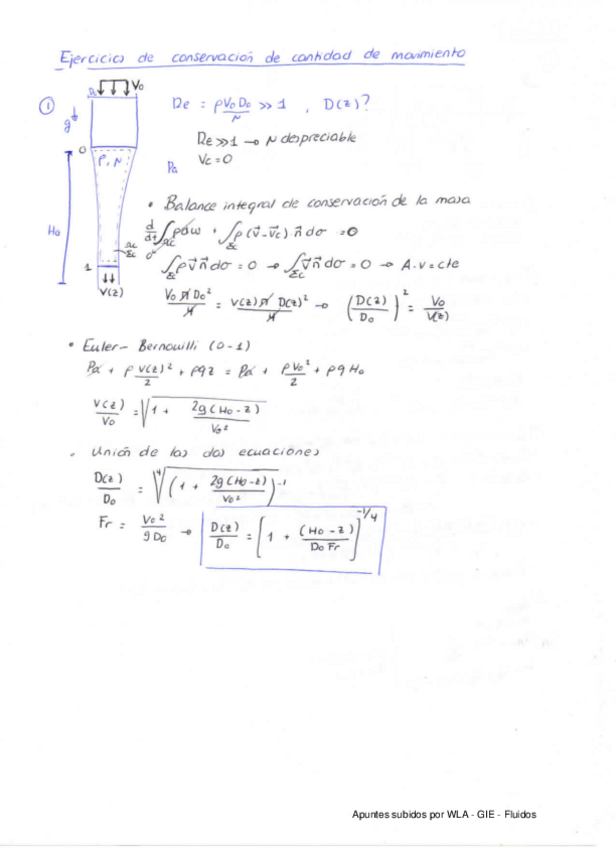 Ejercicios de conservación de cantidad de movimiento
① g D₀ V₀ 0 ρ, N H₀ 1 V(z) Pa
Re = ρV₀D₀/N >> 1 , D(z)?
Re >> 1 → N despreciable
Vc = 0
• Balance integral de conservación de la masa
d/dt ∫ ρdω + ∫Σc ρ(v⃗-v⃗c)·n⃗ dσ = 0
∫Σc ρv⃗n⃗dσ = 0 → ∫Σc v⃗n⃗dσ = 0 → A·v = cte
V₀ π D₀²/4 = V(z) π D(z)²/4 → (D(z)/D₀)² = V₀/V(z)
• Euler - Bernouilli (0-1)
Pa + ρ V(z)²/2 + ρgz = Pa + ρV₀²/2 + ρgH₀
V(z)/V₀ = √(1 + 2g(H₀-z)/V₀²)
• Unión de las dos ecuaciones
D(z)/D₀ = ⁴√((1 + 2g(H₀-z)/V₀²)⁻¹)
Fr = V₀²/gD₀ → D(z)/D₀ = [1 + (H₀-z)/D₀Fr]^-1/4
Apuntes subidos por WLA - GIE - Fluidos